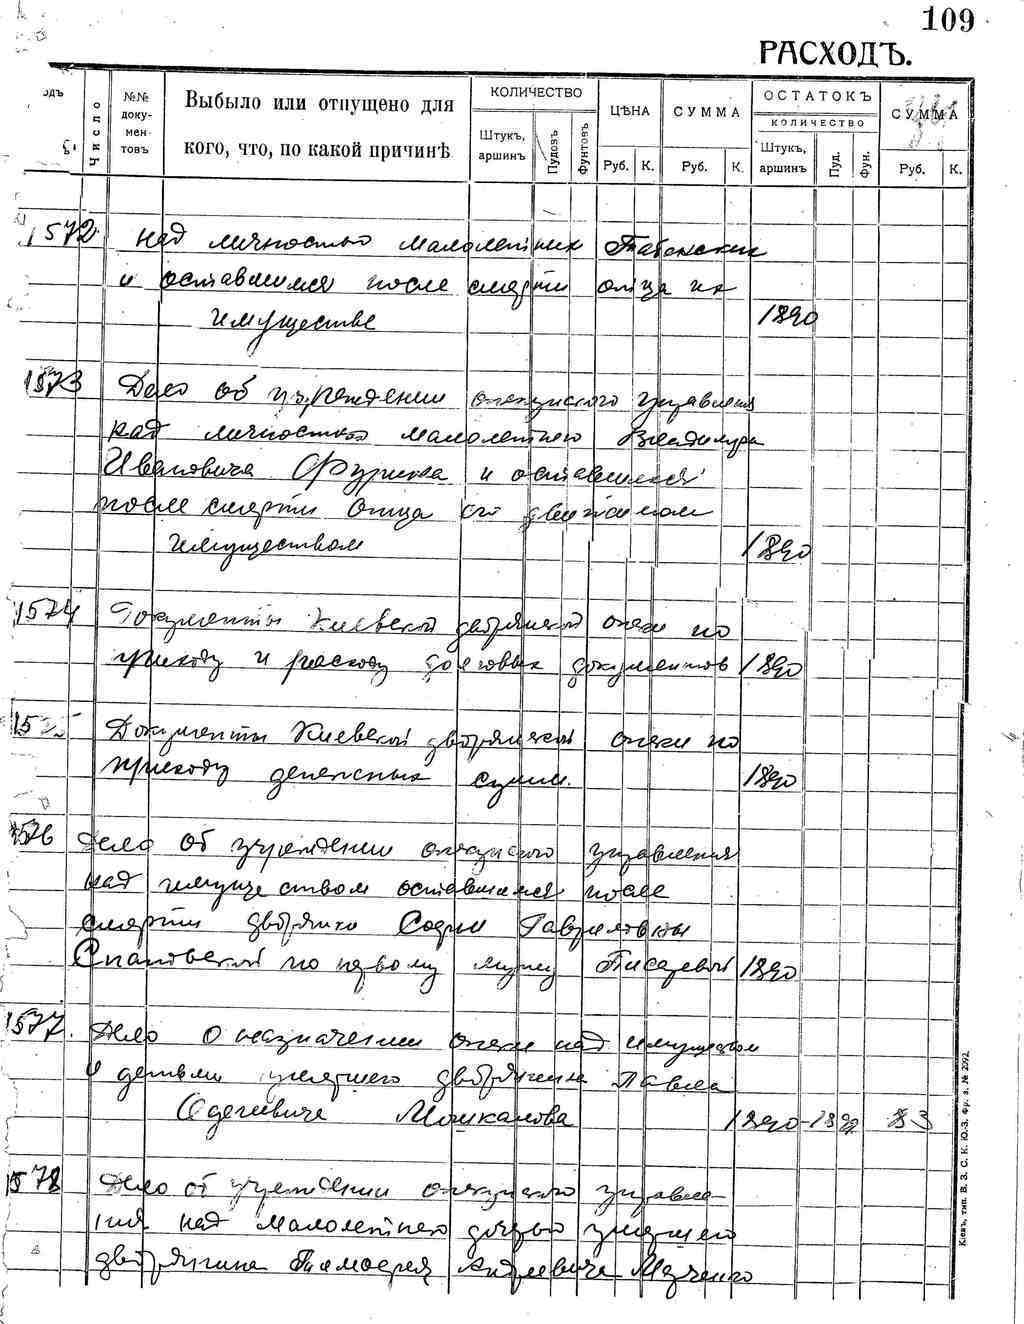 109
РАСХОДЪ.
Число
№№ документовъ
Выбыло или отпущено для кого, что, по какой причинѣ
КОЛИЧЕСТВО
Штукъ, аршинъ
Пудовъ
Фунтовъ
ЦѢНА
Руб. К.
СУММА
Руб. К.
ОСТАТОКЪ
КОЛИЧЕСТВО
Штукъ, аршинъ
Пуд.
Фун.
СУММА
Руб. К.
1572 над личностью малолетних
и оставшимся после смерти отца их
имуществе 1890
1573 Дело об учреждении опекунского управления
над личностью малолетнего Владимира
Ивановича и оставшимся
после смерти отца его движимом
имуществом 1890
1574 Документы Киевской дворянской опеки по
приходу и расходу долговых документов 1890
Документы Киевской дворянской опеки по
приходу денежных сумм. 1890
1576 Дело об учреждении опекунского управления
над имуществом оставшимся после
смерти дворянки Софии Гавриловны
по первому мужу Писаревой 1890
1577. Дело о назначении опеки над имуществом
и детьми умершего дворянина Павла
Мошкалова 1890-189
1578 Дело об учреждении опекунского управле-
ния над малолетнею дочерью умершего
дворянина Тимофея Андреевича
Кіевъ, тип. В. З. С. К. Ю.-З. Фр. з. № 2992